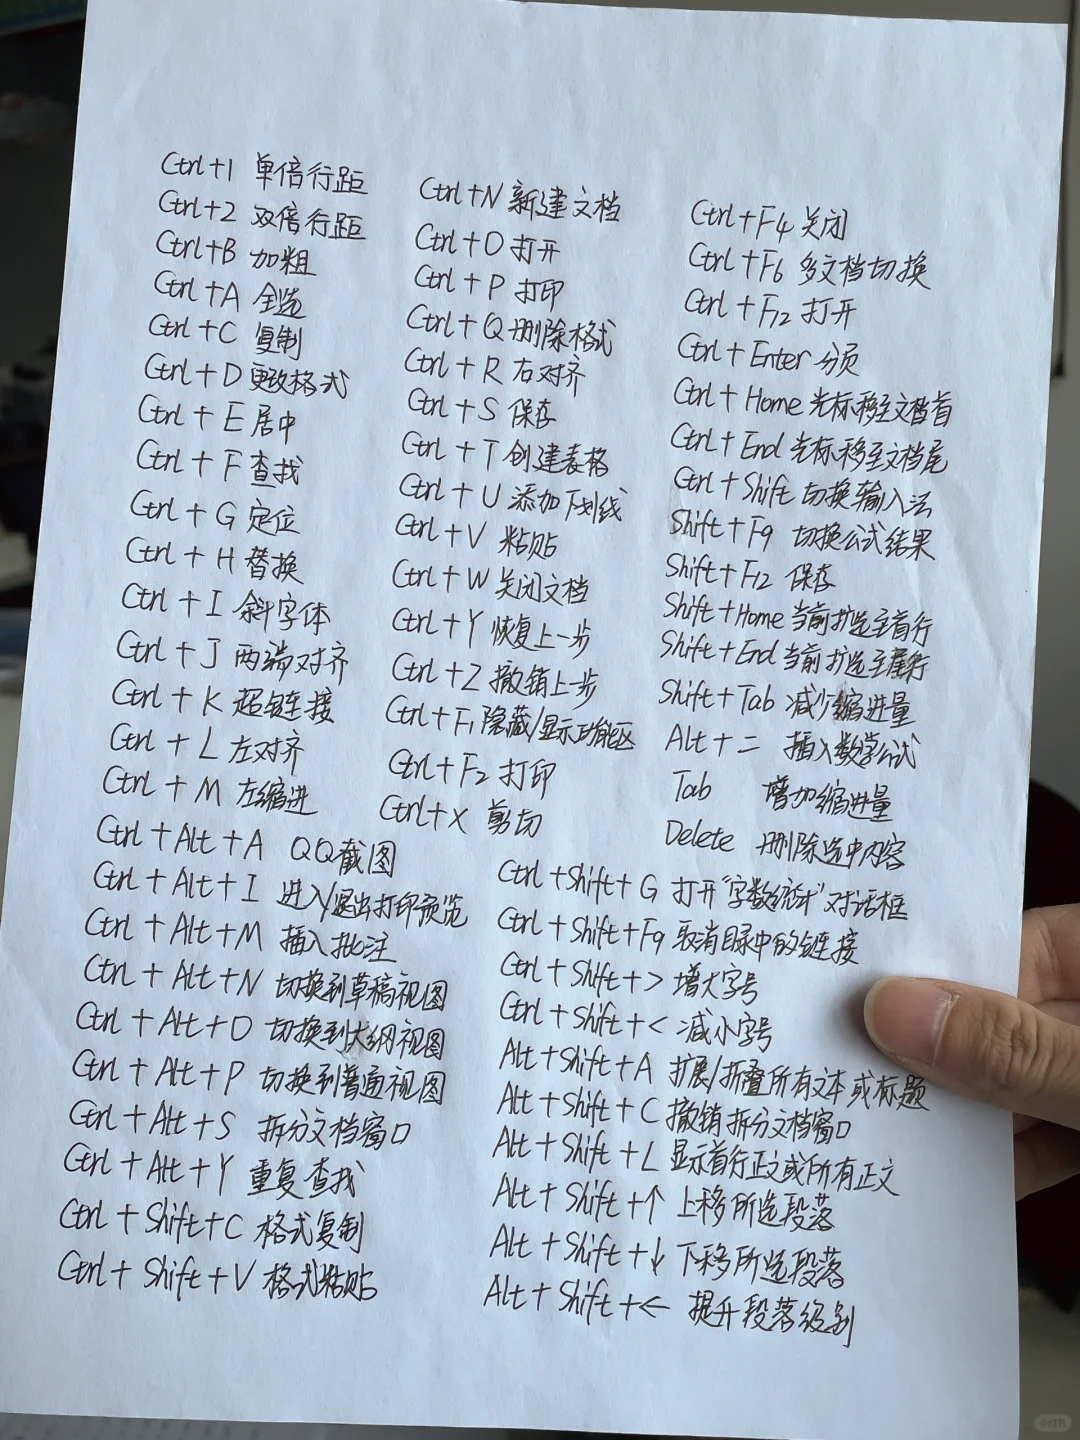 Ctrl+1 单倍行距
Ctrl+2 双倍行距
Ctrl+B 加粗
Ctrl+A 全选
Ctrl+C 复制
Ctrl+D 更改格式
Ctrl+E 居中
Ctrl+F 查找
Ctrl+G 定位
Ctrl+H 替换
Ctrl+I 斜字体
Ctrl+J 两端对齐
Ctrl+K 超链接
Ctrl+L 左对齐
Ctrl+M 左缩进
Ctrl+N 新建文档
Ctrl+O 打开
Ctrl+P 打印
Ctrl+Q 删除格式
Ctrl+R 右对齐
Ctrl+S 保存
Ctrl+T 创建表格
Ctrl+U 添加下划线
Ctrl+V 粘贴
Ctrl+W 关闭文档
Ctrl+Y 恢复上一步
Ctrl+Z 撤销上一步
Ctrl+F1 隐藏/显示功能区
Ctrl+F2 打印
Ctrl+X 剪切
Ctrl+F4 关闭
Ctrl+F6 多文档切换
Ctrl+F12 打开
Ctrl+Enter 分页
Ctrl+Home 光标移至文档首
Ctrl+End 光标移至文档尾
Ctrl+Shift 切换输入法
Shift+F9 切换公式结果
Shift+F12 保存
Shift+Home 当前扩选至首行
Shift+End 当前扩选至尾行
Shift+Tab 减少缩进量
Alt+= 插入数学公式
Tab 增加缩进量
Delete 删除选中内容
Ctrl+Alt+A QQ截图
Ctrl+Alt+I 进入/退出打印预览
Ctrl+Alt+M 插入批注
Ctrl+Alt+N 切换到草稿视图
Ctrl+Alt+O 切换到大纲视图
Ctrl+Alt+P 切换到普通视图
Ctrl+Alt+S 拆分文档窗口
Ctrl+Alt+Y 重复查找
Ctrl+Shift+C 格式复制
Ctrl+Shift+V 格式粘贴
Ctrl+Shift+G 打开"字数统计"对话框
Ctrl+Shift+F9 取消目录中的链接
Ctrl+Shift+> 增大字号
Ctrl+Shift+< 减小字号
Alt+Shift+A 扩展/折叠所有文本或标题
Alt+Shift+C 撤销拆分文档窗口
Alt+Shift+L 显示首行正文或所有正文
Alt+Shift+↑ 上移所选段落
Alt+Shift+↓ 下移所选段落
Alt+Shift+← 提升段落级别
小红书